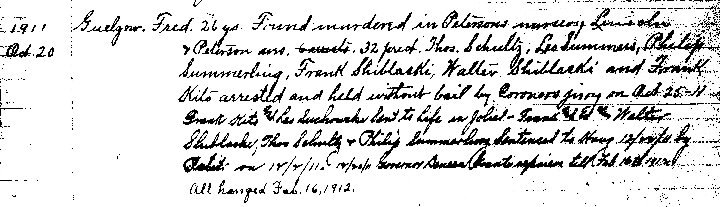 1911 Guelzow. Fred. 26 ys. Found murdered in Petersons nursery Lincoln
Oct. 20 & Peterson avs. 32 prect. Thos. Schultz, Leo Summers, Philip
Summerling, Frank Shiblaski, Walter Shiblaski and Frank
Kito arrested and held without bail by Coroners jury on Oct 25-11
Frank Kito & Leo Suchomske sent to life in Joliet - Frank & Walter
Shiblaski, Thos Schultz & Philip Summerling Sentenced to Hang by
on Governor Deneen Grants reprieve till Feb 16th 1912.
All hanged Feb. 16, 1912.